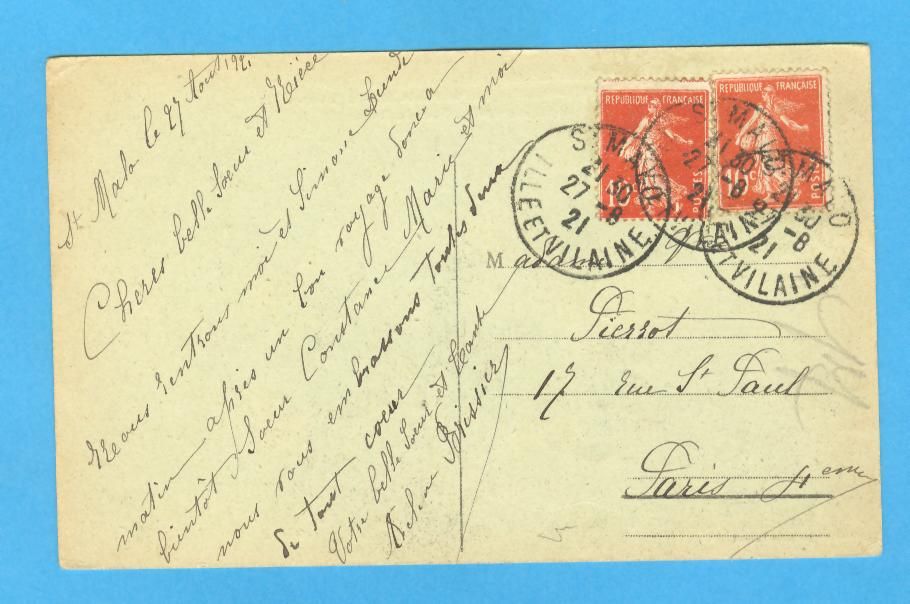 St Malo le 27 Aout 1921
Cheres belle Sœur et Nièce
Nous rentrons moi et Simone Lundi
matin après un bon voyage donc a
bientôt Sœur Constance Marie et moi
nous vous embrassons toutes deux
de tout cœur
Votre belle Sœur et tante
Helene Brissier
REPUBLIQUE FRANÇAISE
POSTES
10
REPUBLIQUE FRANÇAISE
POSTES
10
ST MALO
21 30
27 -8
21
ILLE ET VILAINE
ST MALO
21 30
27 -8
21
ST MALO
21 30
27 -8
21
ILLE ET VILAINE
Madame
Pierrot
17 rue St Paul
Paris 4eme